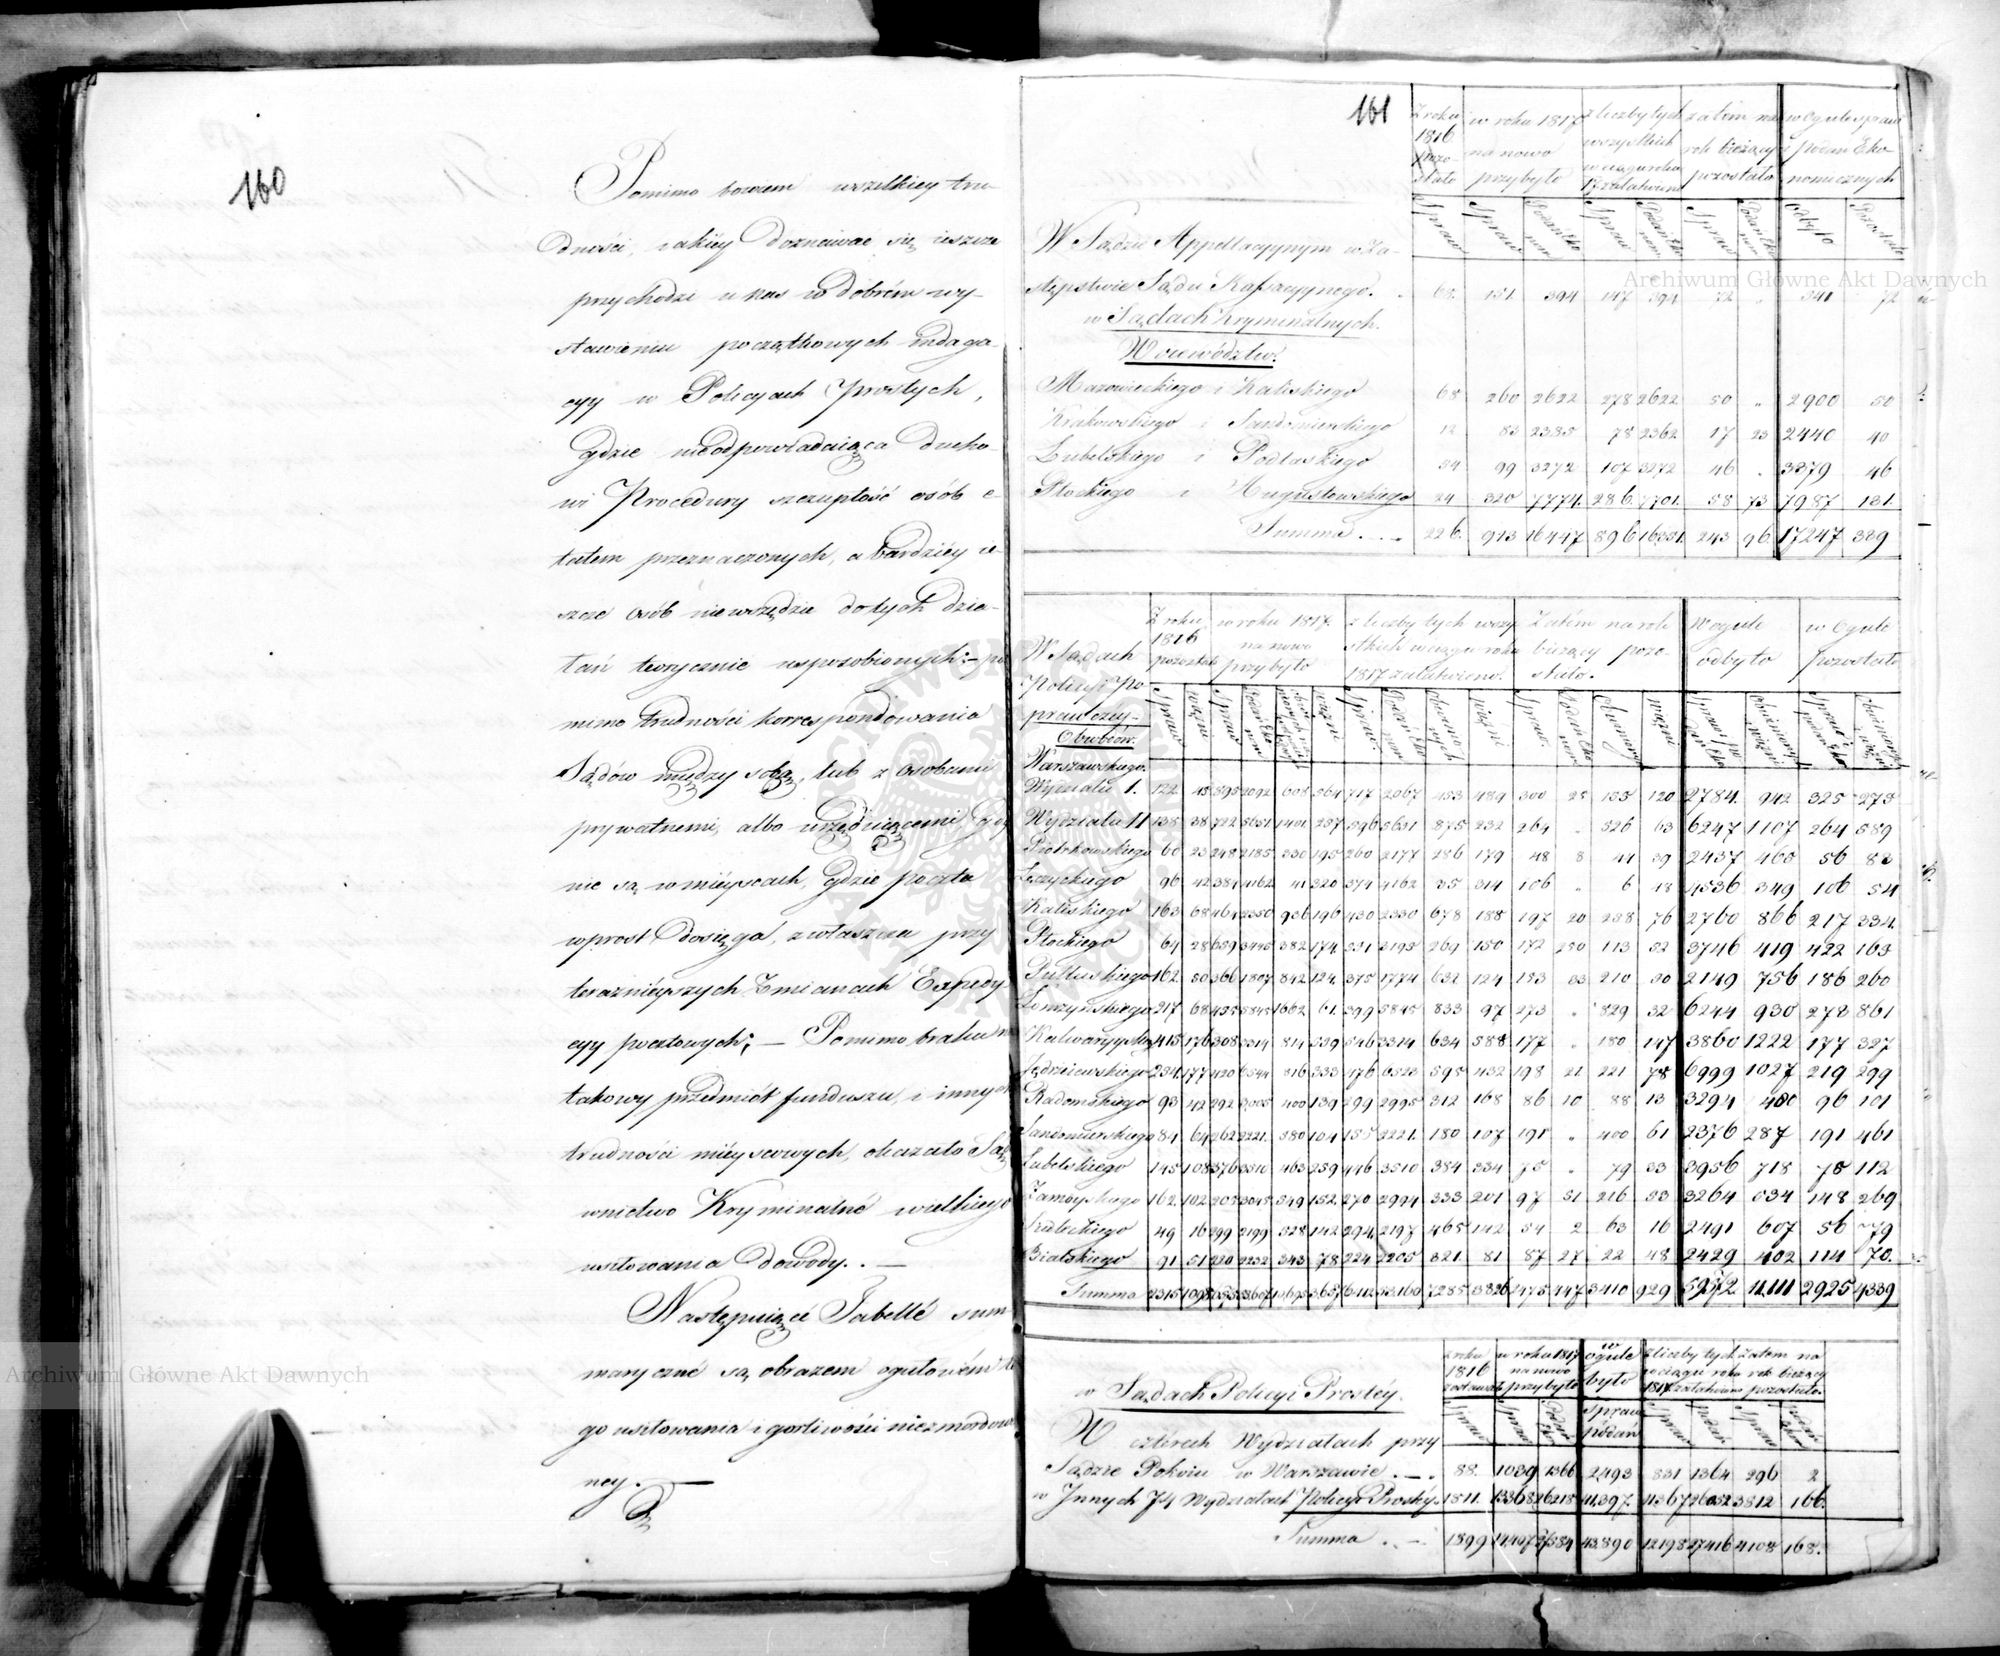 160
Pomimo bowiem wszelkiey tru-
dności, iakiey doznawać się ieszcze
przychodzi u nas w dobrém wy-
stawieniu początkowych indaga-
cyy w Policyach Prostych,
Gdzie nieodpowiadaiąca ducho-
wi Procedury szczupłość osób e-
tatem przeznaczonych, a bardziéy ie-
szcze osób niewszędzie do tych dzia-
łań teorycznie usposobionych;- po
mimo trudności korrespondowania
Sądów między sobą, lub z osobami
prywatnemi, albo urzęduiącemi, gdy
nie są w mieyscach, gdzie poczta
wprost dosięga, zwłaszcza przy
teraznieyszych Zmianach Expedy
cyy pocztowych; — Pomimo braku na
takowy przedmiót funduszu, i innych
trudności mieyscowych, okazało Są
wnictwo Kryminalné wielkiego
usiłowania dowody. —
Następuiące Tabellé sum-
maryczné są obrazem ogułowém te
go usiłowania i gorliwości niezmordowa
ney. —
161
Z roku 1816 pozostało
w roku 1817 na nowo przybyło
z liczby tych wszystkich w ciągu roku 1817 załatwiono
zatem na rok bieżący pozostało
w Ogule spraw i podań Ekonomicznych
Spraw Spraw Podań Ekonom Spraw Podań Ekonom Spraw Podań Ekonom odbyto Pozostało
W Sądzie Appellacyynym w Za-
stępstwie Sądu Kassacyynego. 68. 151. 394 147 394 72 " 541 72
w Sądach Kryminalnych.
Woiewództw.
Mazowieckiego i Kaliskiego 68 260 2622 278 2622 50 " 2900 50
Krakowskiego i Sandomierskiego 12 83 2385 78 2362 17 23 2440 40
Lubelskiego i Podlaskiego 54 99 3272 107 3272 46 " 3379 46
Płockiego i Augustowskiego 24 320 7774. 286. 7701. 58 73 7987 131.
Summa . . . . 226. 913 16447 896 16351. 243 96 17247 339
W Sądach Policyi Poprawczey- Obwodów.
Z roku 1816 pozostało
w roku 1817. na nowo przybyło
z liczby tych wszystkich w ciągu roku 1817 załatwiono.
Zatém na rok bieżący pozostało.
W ogule odbyto
w Ogule pozostało
Warszawskiego.
Wydziału 1. 122. 717 2067 453 489 300 25 155 120 2784. 942 325 275
Wydziału II 138 38 722 5651 1401. 257 596 5651 875 232 264 " 526 63 6247 1107 264 589
Piotrkowskiego 60 23 248 2185 330 195 260 2177 286 179 48 8 44 39 2437 465 56 83
Łęczyckiego 96 42 384 4162 41 320 374 4162 35 314 106 " 6 48 4536 349 106 54
Kaliskiego 163 68 464 2350 936 196 430 2330 678 188 197 20 258 76 2760 866 217 334.
Płockiego 64 28 659 3445 382 174 551 3195 269 150 172 250 113 52 3746 419 422 165
Pułtuskiego 162. 50 366 1807 842 124. 375 1774 632 124 153 33 210 50 2149 756 186 260
Łomżyńskiego 217 68 455 5845 1662 61. 399 5845 833 97 273 " 829 32 6244 930 273 861
Kalwaryyskiego 415 176 308 3314 814 559 546 3314 634 588 177 " 180 147 3860 1222 177 327
Jędrzeiewskiego 254. 177 420 6544 816 333 476 6523 595 432 198 21 221 78 6999 1027 219 299
Radomskiego 93 42 292 3005 400 139 299 2995 312 168 86 10 88 13 3294 480 96 101
Sandomierskiego 84 64 262 2221. 580 104 155 2221. 180 107 191 " 400 61 2376 287 191 461
Lubelskiego 145 108 376 3510 463 259 446 3510 384 334 75 " 79 33 3956 718 75 112
Zamoyskiego 162. 102 205 3045 549 152. 270 2994 333 201 97 51 216 53 3264 534 148 269
Siedleckiego 49 16 299 2199 528 142 294. 2197 465 142 54 2 63 16 2491 607 56 79
Bialskiego 91 51 220 2232 343 78 224 2205 321. 81 87 27 22 48 2429 402 114 70.
Summa 2315 7285 3826 2475 447 3410 929 59572. 11.111 2925 4339
w Sądach Policyi Prostéy.
z roku 1816 zostawało
w roku 1817 na nowo przybyło
w ogule było
z liczby tych w ciągu roku 1817 załatwiono
Zatem na rok bieżący pozostało.
W czterech Wydziałach przy
Sądzie Pokoiu w Warszawie . — . 88. 1039 1366 2,493 831 1364 296 2
w Innych 74 Wydziałach Policyi Prostéy. 1811. 13368 26218 41,397. 11367 26052 3812 166.
Summa . — 1899 14,407 27584 43,890 12198 27416 4108 168.
Archiwum Główne Akt Dawnych
Archiwum Główne Akt Dawnych